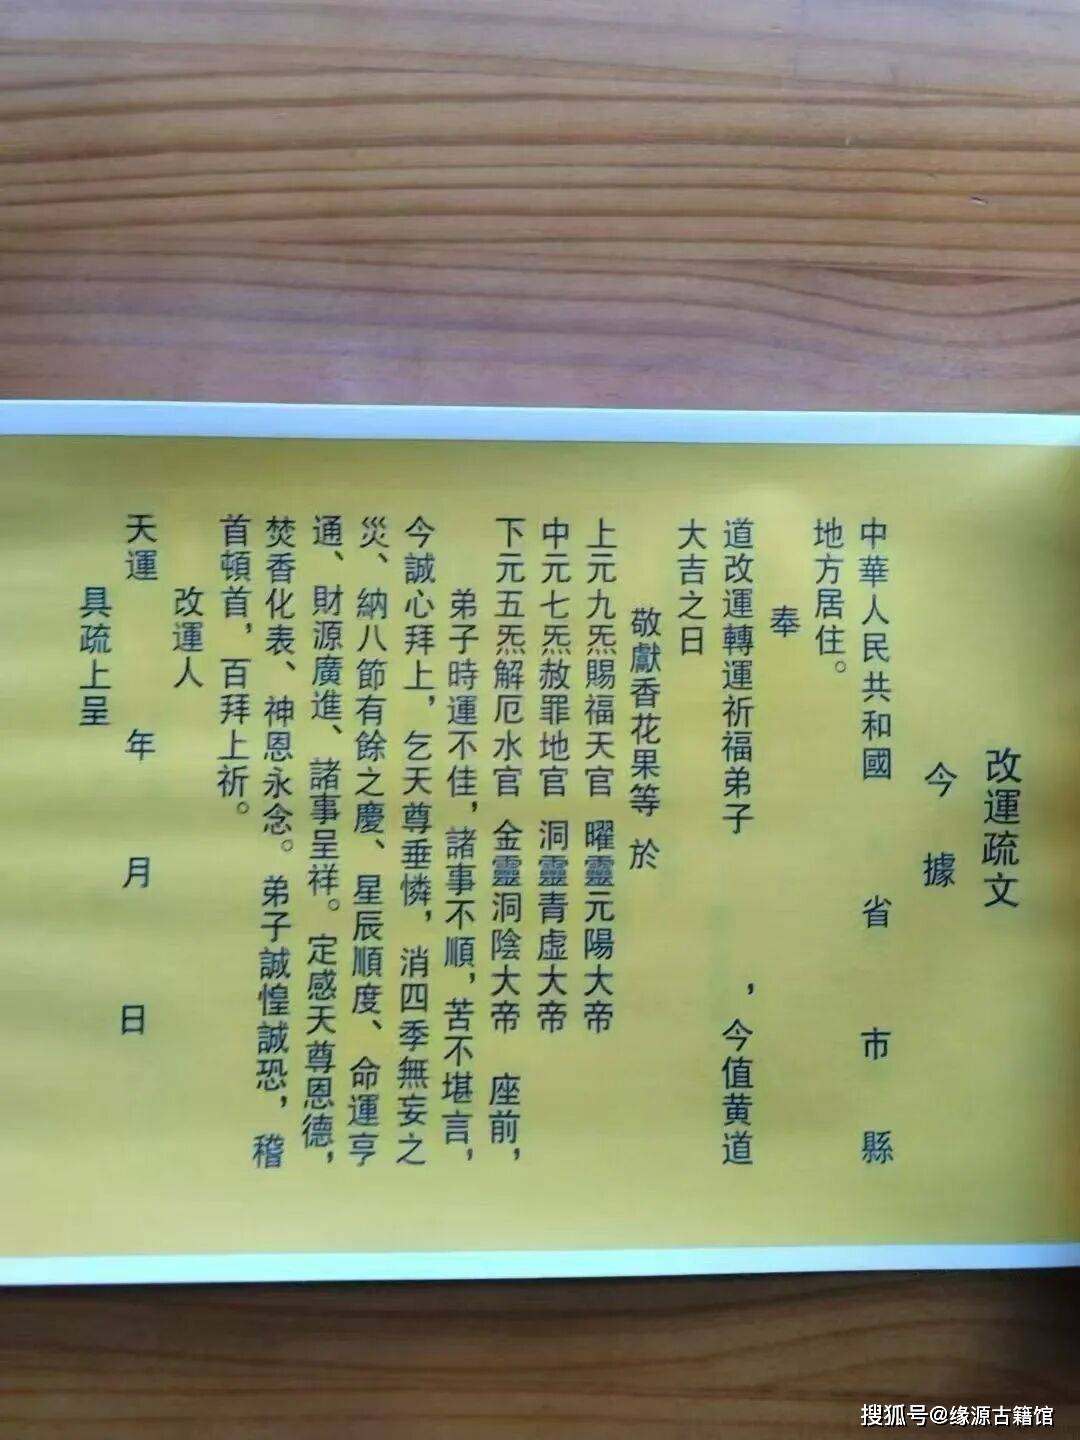 改運疏文
今據
中華人民共和國 省 市 縣
地方居住。
奉
道改運轉運祈福弟子 ，今值黃道
大吉之日
敬獻香花果等 於
上元九炁賜福天官 曜靈元陽大帝
中元七炁赦罪地官 洞靈青虛大帝
下元五炁解厄水官 金靈洞陰大帝 座前，
弟子時運不佳，諸事不順，苦不堪言，
今誠心拜上，乞天尊垂憐，消四季無妄之
災、納八節有餘之慶、星辰順度、命運亨
通、財源廣進、諸事呈祥。定感天尊恩德，
焚香化表、神恩永念。弟子誠惶誠恐，稽
首頓首，百拜上祈。
改運人
天運 年 月 日
具疏上呈
搜狐号@缘源古籍馆